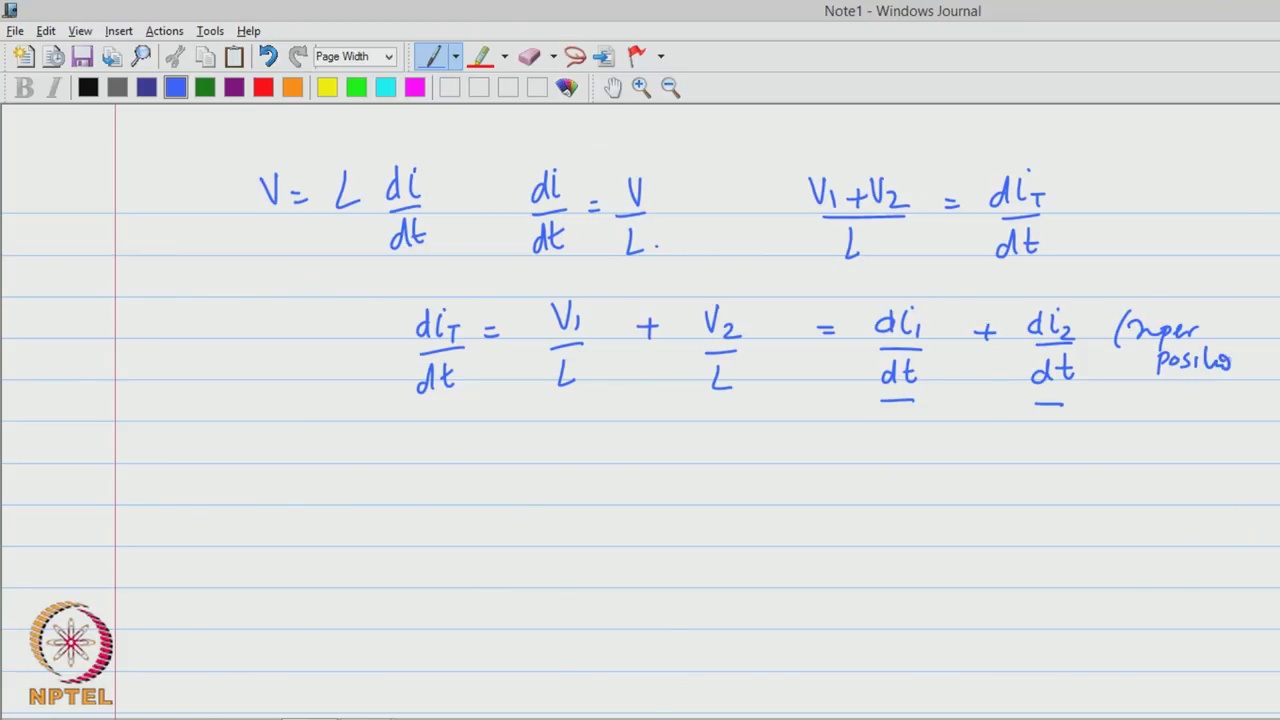 Note1 - Windows Journal
File Edit View Insert Actions Tools Help
Page Width
B I
V = L di/dt di/dt = V/L. V1+V2/L = diT/dt
diT/dt = V1/L + V2/L = di1/dt + di2/dt (super
positio
NPTEL